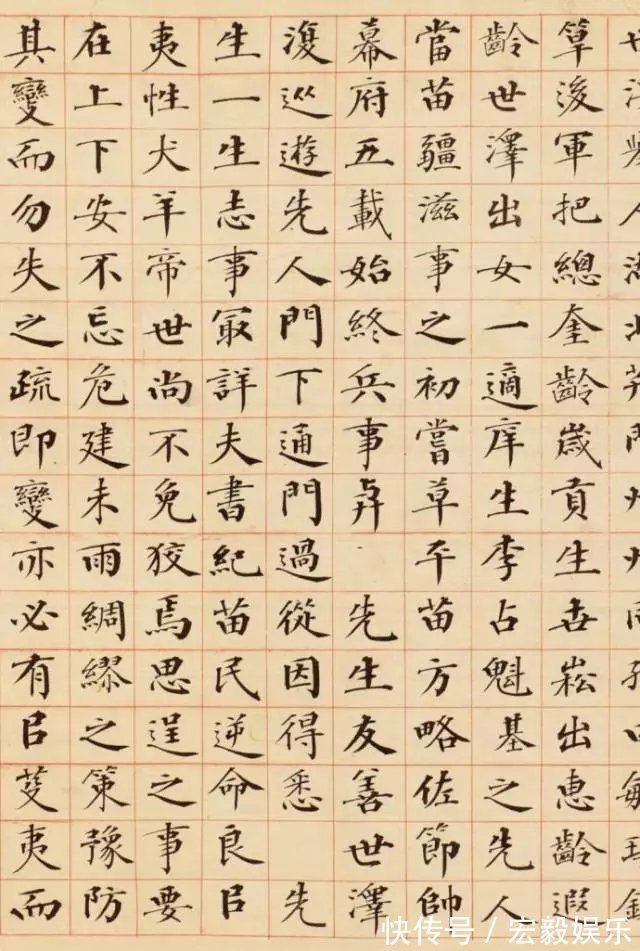 後軍把總奎齡歲貢生世崧出惠齡遐
齡世澤出女一適庠生李占魁基之先人
當苗疆滋事之初嘗草平苗方略佐節帥
幕府五載始終兵事 先生友善世澤
復從遊先人門下通門過從因得悉 先
生一生志事最詳夫書紀苗民逆命良㠯
夷性犬羊帝世尚不免狡焉思逞之事要
在上下安不忘危建未雨綢繆之策豫防
其變而勿失之疏即變亦必有㠯芟夷而
快传号／宏毅娱乐